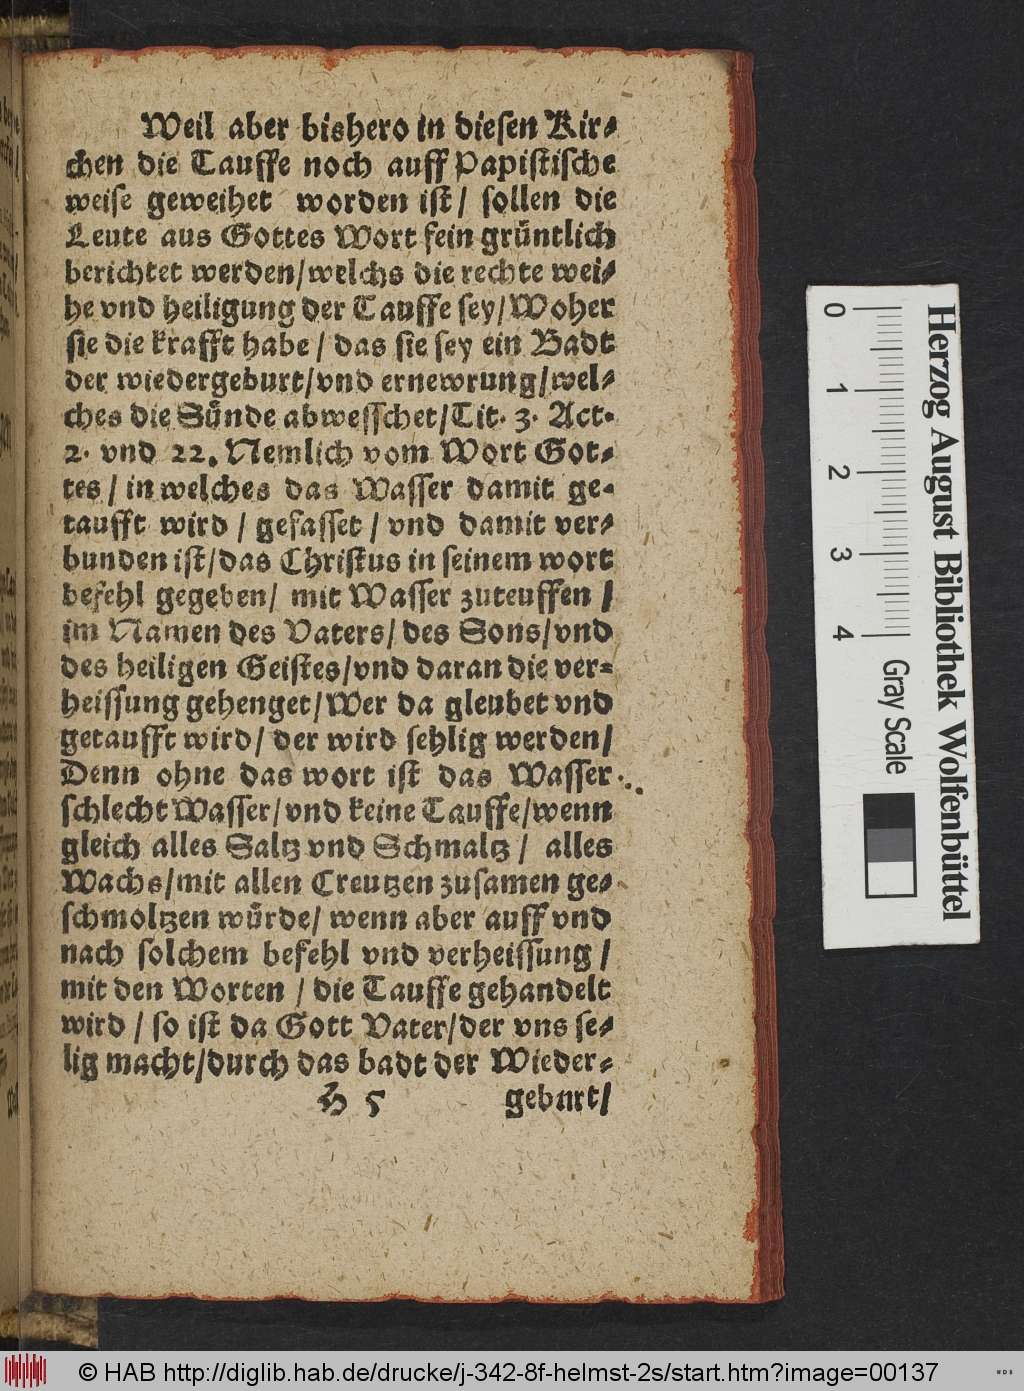 Weil aber bishero in diesen Kir⸗
chen die Tauffe noch auff Papistische
weise geweihet worden ist/ sollen die
Leute aus Gottes Wort fein gruͤntlich
berichtet werden/welchs die rechte wei⸗
he vnd heiligung der Tauffe sey/Woher
sie die krafft habe/ das sie sey ein Badt
der wiedergeburt/vnd ernewrung/wel⸗
ches die Suͤnde abwesschet/Tit. 3. Act.
2. vnd 22. Nemlich vom Wort Got⸗
tes/ in welches das Wasser damit ge⸗
taufft wird/ gefasset/ vnd damit ver⸗
bunden ist/das Christus in seinem wort
befehl gegeben/ mit Wasser zuteuffen/
im Namen des Vaters/ des Sons/vnd
des heiligen Geistes/vnd daran die ver⸗
heissung gehenget/Wer da gleubet vnd
getaufft wird/ der wird sehlig werden/
Denn ohne das wort ist das Wasser
schlecht Wasser/vnd keine Tauffe/wenn
gleich alles Saltz vnd Schmaltz/ alles
Wachs/mit allen Creutzen zusamen ge⸗
schmoltzen wuͤrde/ wenn aber auff vnd
nach solchem befehl vnd verheissung/
mit den Worten/ die Tauffe gehandelt
wird/ so ist da Gott Vater/der vns se⸗
lig macht/durch das badt der Wieder⸗
H 5 geburt/
0 1 2 3 4 Gray Scale
Herzog August Bibliothek Wolfenbüttel
© HAB http://diglib.hab.de/drucke/j-342-8f-helmst-2s/start.htm?image=00137